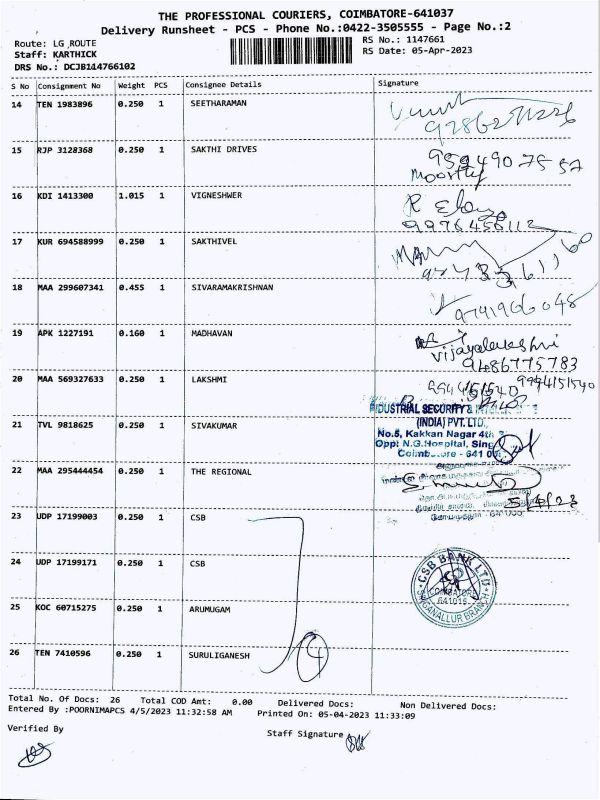 THE PROFESSIONAL COURIERS, COIMBATORE-641037
Delivery Runsheet - PCS - Phone No.:0422-3505555 - Page No.:2
Route: LG ROUTE RS No.: 1147661
Staff: KARTHICK RS Date: 05-Apr-2023
DRS No.: DCJB114766102
S No Consignment No Weight PCS Consignee Details Signature
14 TEN 1983896 0.250 1 SEETHARAMAN
15 RJP 3128368 0.250 1 SAKTHI DRIVES
Moorthy
16 KDI 1413300 1.015 1 VIGNESHWER
9976456112
17 KUR 694588999 0.250 1 SAKTHIVEL
18 MAA 299607341 0.455 1 SIVARAMAKRISHNAN
9791966048
19 APK 1227191 0.160 1 MADHAVAN
Vijayalakshmi
9486775783
20 MAA 569327633 0.250 1 LAKSHMI
9994151540
INDUSTRIAL SECURITY &
(INDIA) PVT. LTD.,
21 TVL 9818625 0.250 1 SIVAKUMAR
No.5, Kakkan Nagar 4th
Opp: N.G.Hospital, Sing
Coimbatore - 641 00
22 MAA 295444454 0.250 1 THE REGIONAL
5/4/23
23 UDP 17199003 0.250 1 CSB
24 UDP 17199171 0.250 1 CSB
CSB BANK LTD
COIMBATORE
641015
SINGANALLUR BRANCH
25 KOC 60715275 0.250 1 ARUMUGAM
26 TEN 7410596 0.250 1 SURULIGANESH
Total No. Of Docs: 26 Total COD Amt: 0.00 Delivered Docs: Non Delivered Docs:
Entered By :POORNIMAPCS 4/5/2023 11:32:58 AM Printed On: 05-04-2023 11:33:09
Verified By Staff Signature